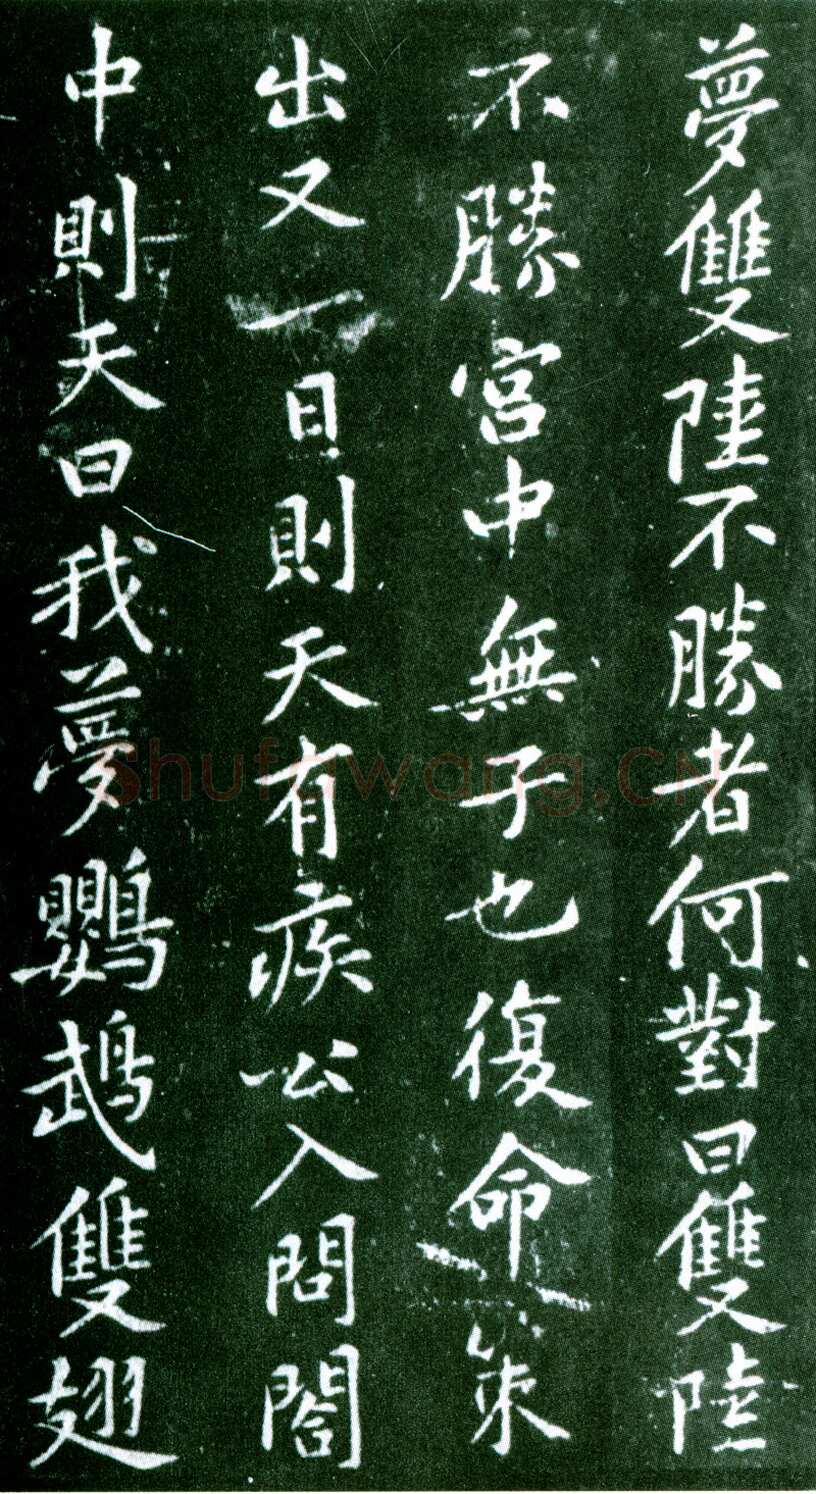 夢雙陸不勝者何對曰雙陸
不勝宮中無子也復命策
出又一日則天有疾公入問閤
中則天曰我夢鸚鵡雙翅
shufawang.CN